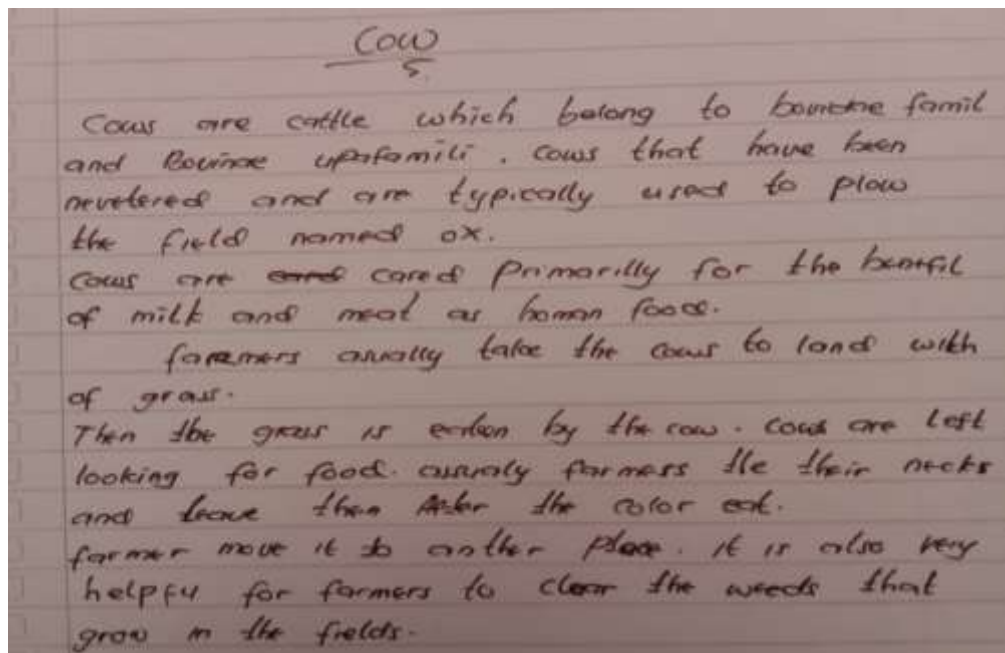 Cow
Cows are cattle which belong to famil
and Bovinae upafamili. Cows that have been
nevetered and are typically used to plow
the field named ox.
Cows are cared primarilly for the benefil
of milk and meat as homan food.
faremers asually take the cows to land with
of grass.
Then the grass is by the cow. Cows are left
looking for food. asualy farmers tle their necks
and leave then After the color eat.
farmer move it to anther place. it is also very
helpfu for farmers to clear the weeds that
grow in the fields.